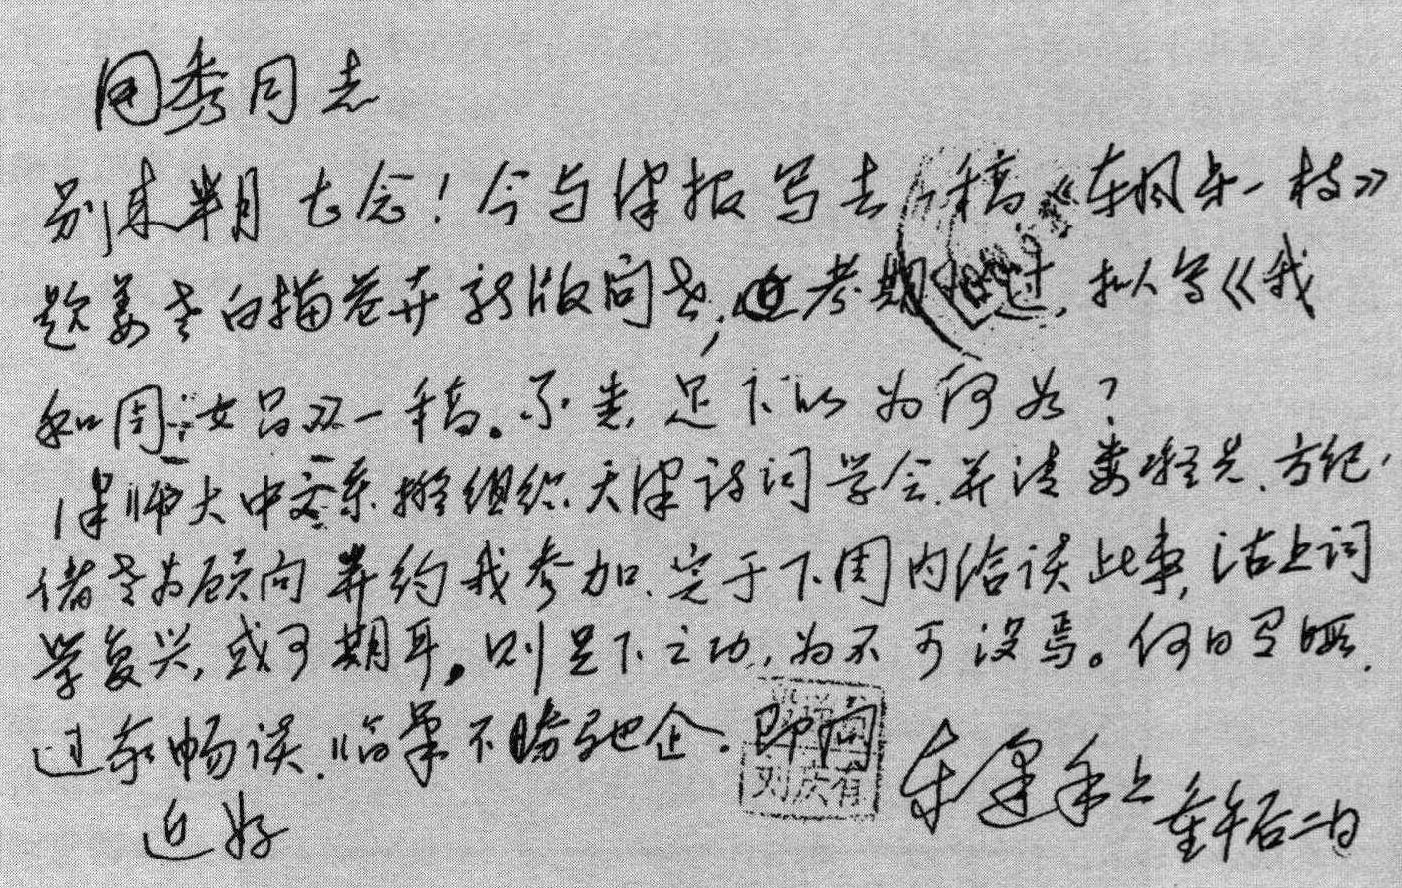 同秀同志
别来半月长念！今与津报写去一稿《东风第一枝》
题姜老白描卷并新版问世，近考期已过，拟写《我
和周汝昌》一稿。不悉足下以为何如？
津师大中文系拟组织天津诗词学会，并请娄凝先、方纪，
诸老为顾问并约我参加，定于下周内洽谈此事，沽上词
学复兴，或可期耳。则足下之功，为不可没焉。何日有暇，
过家畅谈，临笔不胜驰企。即问
近好
上 重午后二日
刘 有